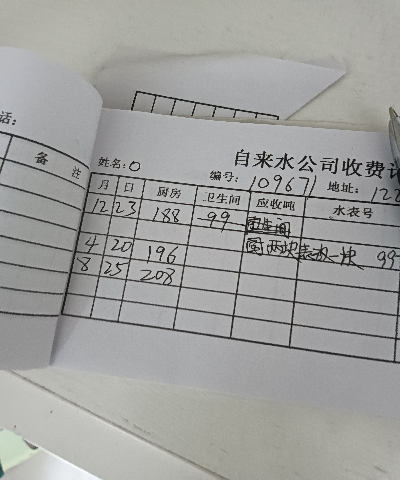 话：
备 注
自来水公司收费
姓名：0 编号：109671 地址：122
月 日 厨房 卫生间 应收吨 水表号
12 23 188 99 卫生间
4 20 196 两块表水一块 99
8 25 208